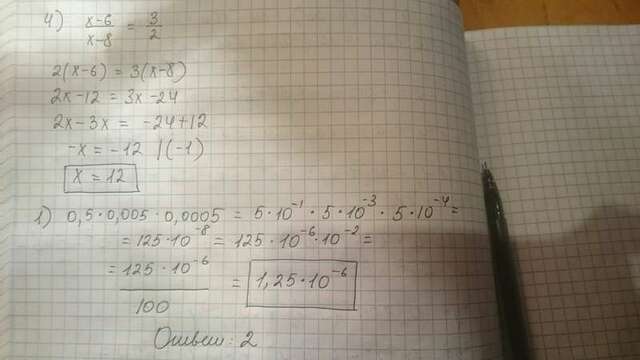 4) x-6/x-8 = 3/2
2(x-6) = 3(x-8)
2x-12 = 3x-24
2x-3x = -24+12
-x = -12 |(-1)
x = 12
1) 0,5·0,005·0,0005 = 5·10⁻¹·5·10⁻³·5·10⁻⁴=
= 125·10⁻⁸ = 125·10⁻⁶·10⁻² =
= 125·10⁻⁶/100 = 1,25·10⁻⁶
Ответ: 2